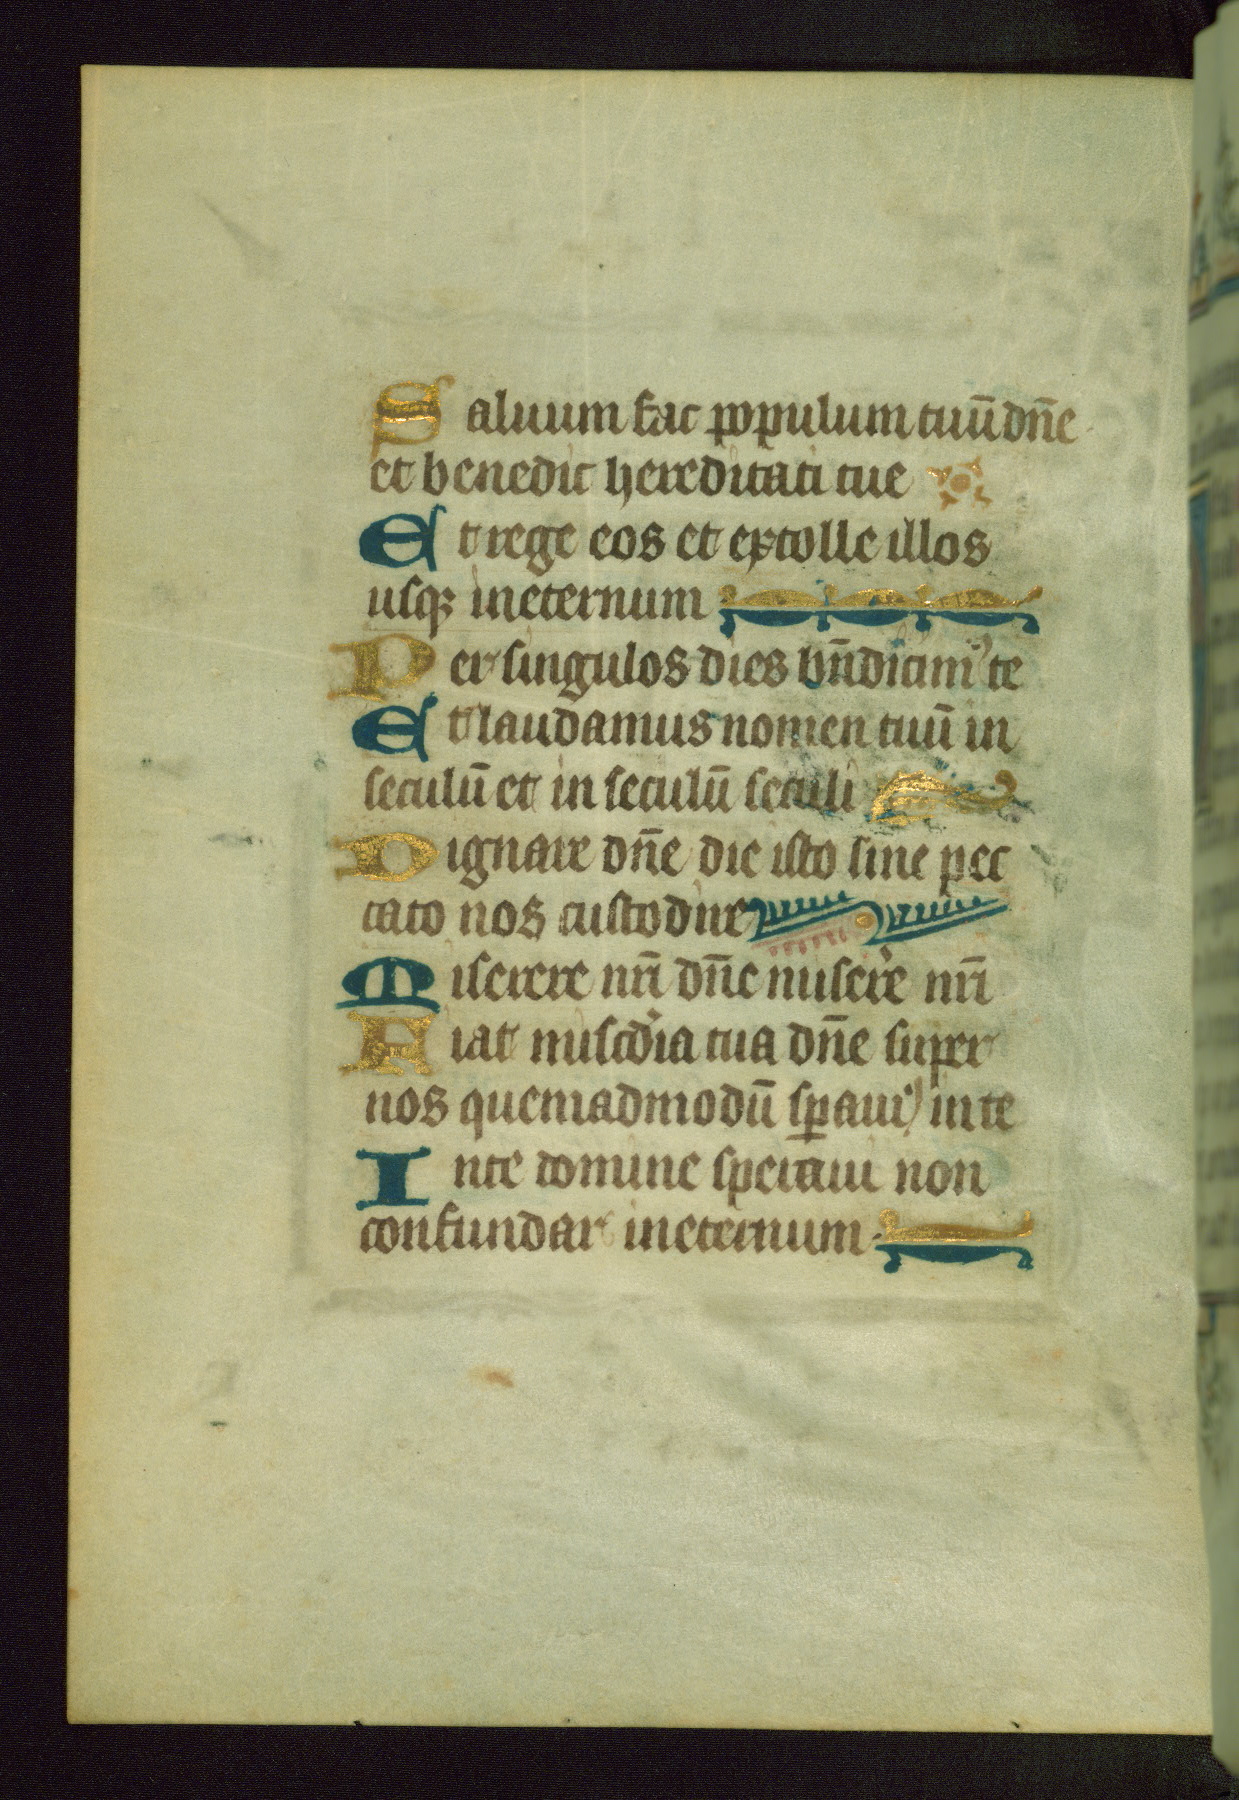 Saluum fac populum tuū dn̄e
et benedic hereditati tue
Et rege eos et extolle illos
usqꝫ ineternum
Per singulos dies bn̄dicimꝰ te
Et laudamus nomen tuū in
seculū et in seculū seculi
Dignare dn̄e die isto sine pec
cato nos custodire
Miserere nr̄i dn̄e misere nr̄i
Fiat miscd̓ia tua dn̄e super
nos quemadmodū sꝑauiꝰ in te
In te domine speraui non
confundar ineternum.